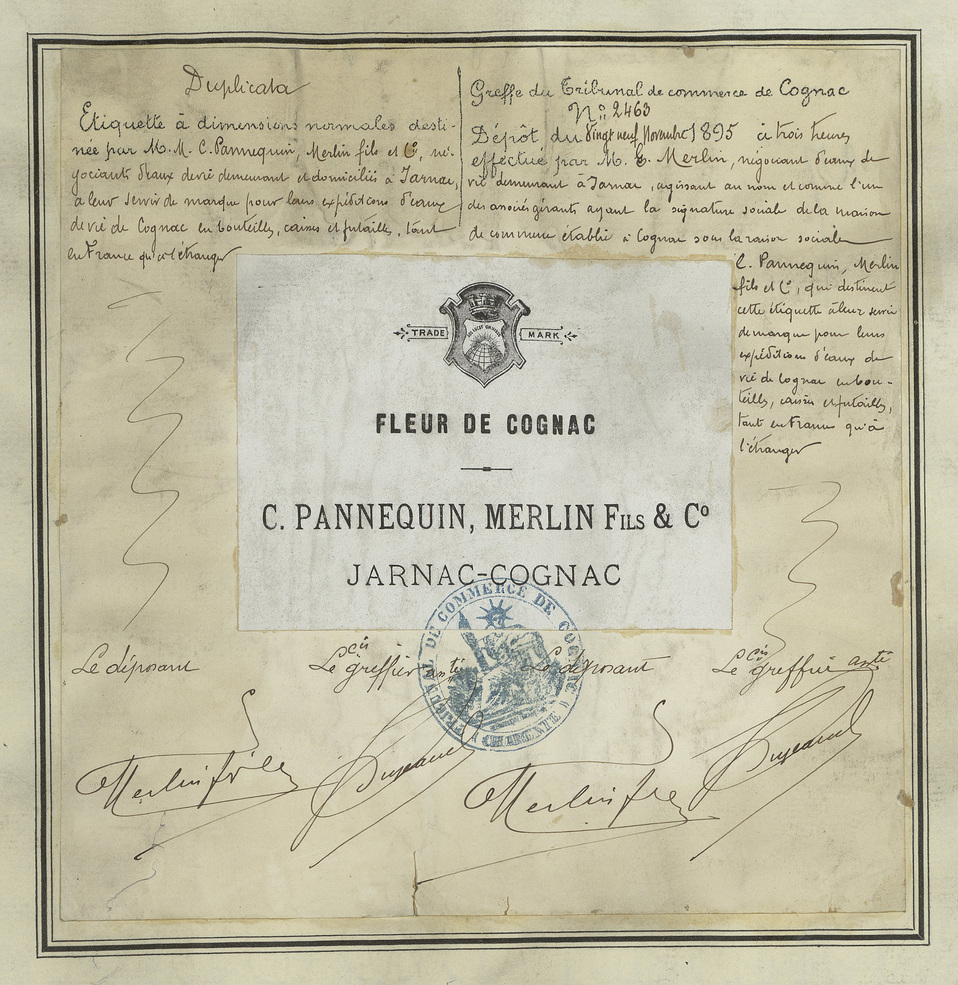 Duplicata
Etiquette à dimensions normales desti-
née par M.M. C. Pannequin, Merlin fils et Cⁱᵉ, né-
gociants d'eaux de vie demeurant et domiciliés à Jarnac,
à leur servir de marque pour leurs expéditions d'eaux
de vie de Cognac en bouteilles, caisses et futailles, tant
en France qu'à l'étranger
Greffe du Tribunal de commerce de Cognac
N° 2463
Dépôt du Vingt neuf Novembre 1895 à trois heures
effectué par M. E. Merlin, négociant d'eaux de
vie demeurant à Jarnac, agissant au nom et comme l'un
des associés gérants ayant la signature sociale de la maison
de commerce établie à Cognac sous la raison sociale
C. Pannequin, Merlin
fils et Cⁱᵉ, qui destinent
cette étiquette à leur servir
de marque pour leurs
expéditions d'eaux de
vie de Cognac en bou-
teilles, caisses et futailles,
tant en France qu'à
l'étranger
TRADE MARK
FLEUR DE COGNAC
C. PANNEQUIN, MERLIN FILS & Cº
JARNAC-COGNAC
TRIBUNAL DE COMMERCE DE COGNAC
CHARENTE
Le déposant
Le cis greffier
Le déposant
Le cis greffier
Merlin fils
Merlin fils